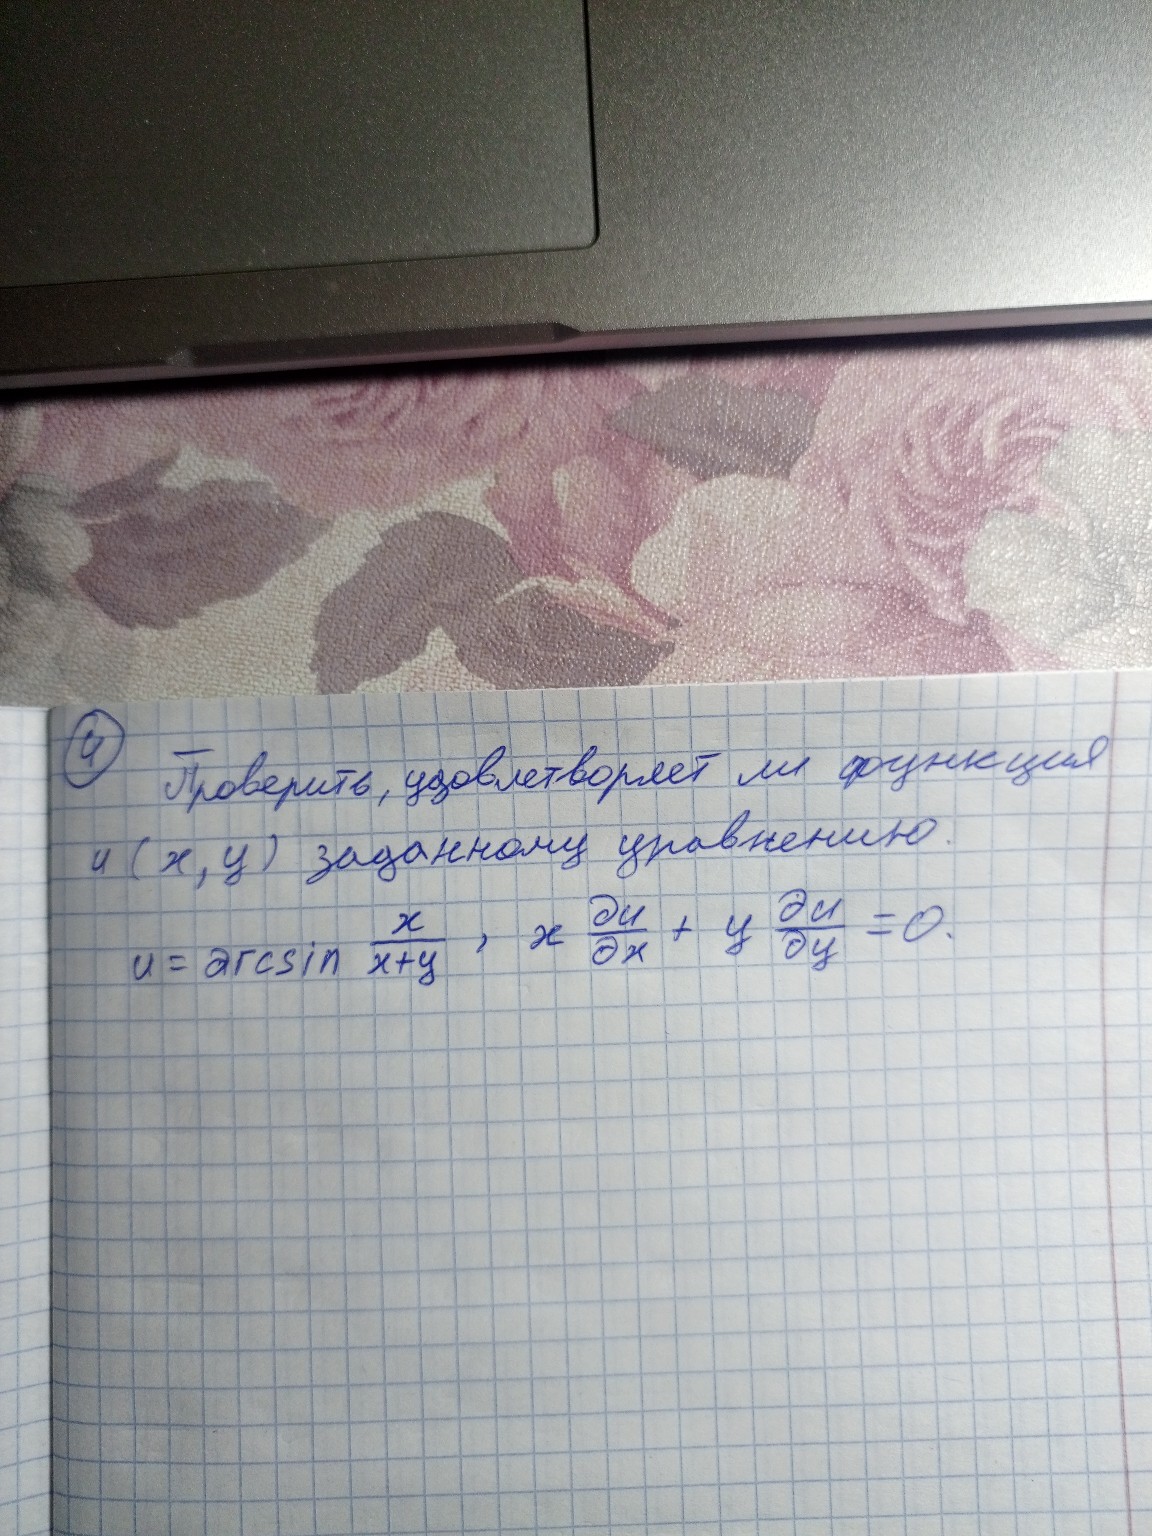 ④ Проверить, удовлетворяет ли функция
u(x,y) заданному уравнению.
u = arcsin x/(x+y), x ∂u/∂x + y ∂u/∂y = 0.